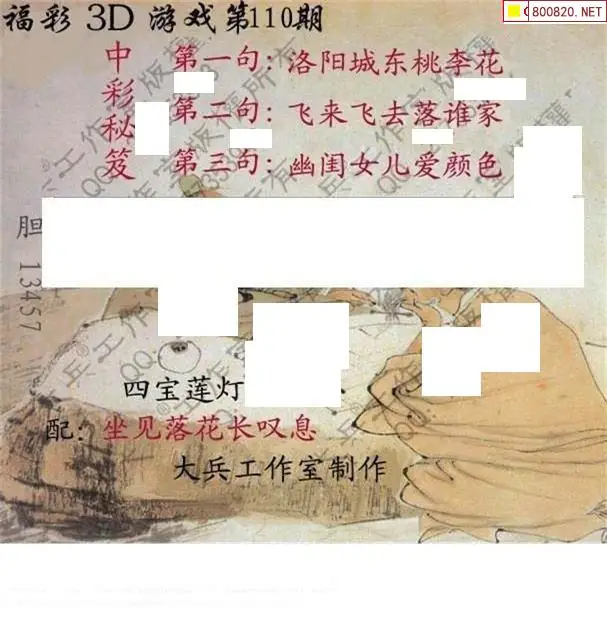 福彩 3D 游戏第110期
800820.NET
中彩秘笈
第一句：洛阳城东桃李花
第二句：飞来飞去落谁家
第三句：幽闺女儿爱颜色
胆
13457
四宝莲灯
配：坐见落花长叹息
大兵工作室制作